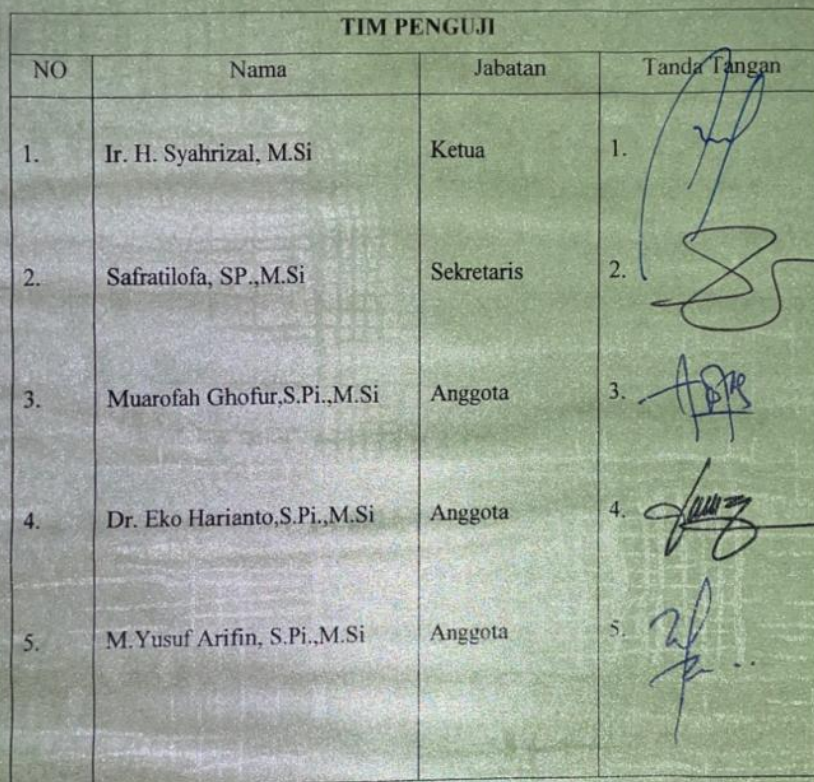 TIM PENGUJI
NO Nama Jabatan Tanda Tangan
1. Ir. H. Syahrizal, M.Si Ketua 1.
2. Safratilofa, SP.,M.Si Sekretaris 2.
3. Muarofah Ghofur,S.Pi.,M.Si Anggota 3.
4. Dr. Eko Harianto,S.Pi.,M.Si Anggota 4.
5. M.Yusuf Arifin, S.Pi.,M.Si Anggota 5.